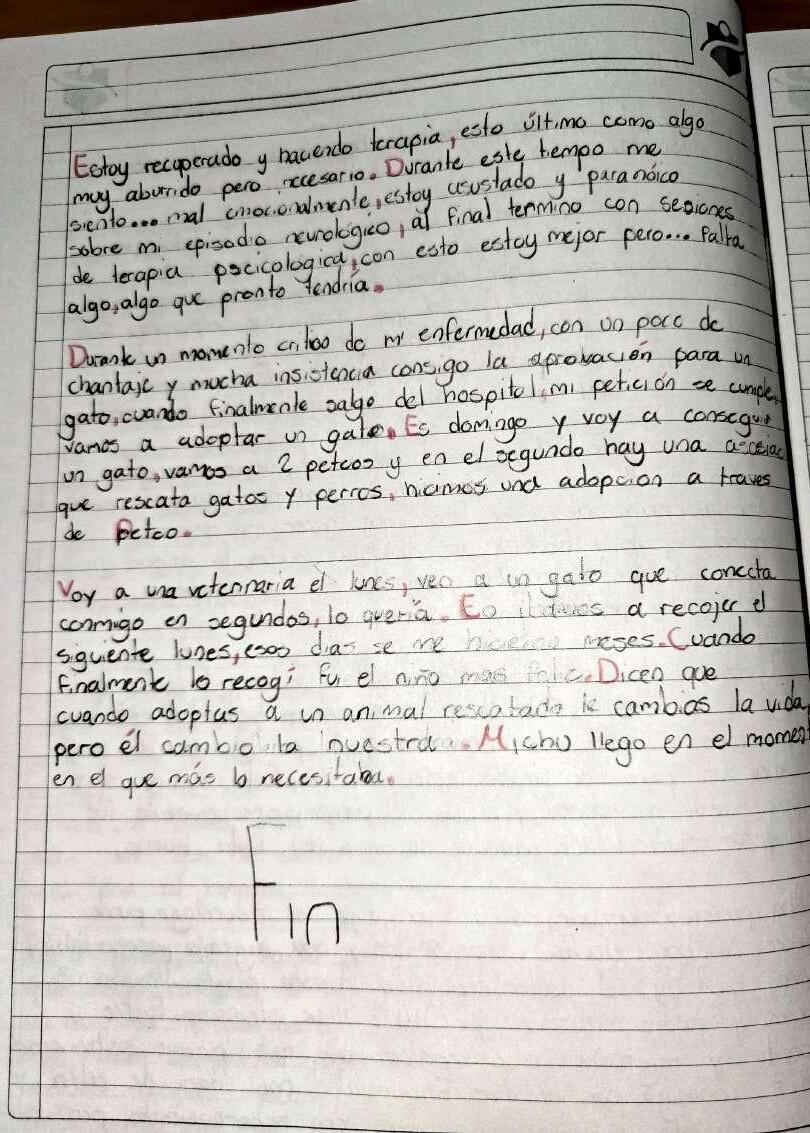 Estoy recuperado y haciendo terapia, esto último como algo
muy aburrido pero necesario. Durante este tiempo me
siento... mal emocionalmente, estoy asustado y paranóico
sobre mi episodio neurologico, al final termino con sesiones
de terapia pscicologica, con esto estoy mejor pero... falta
algo, algo que pronto tendría.
Durante un momento critico de mi enfermedad, con un poco de
chantaje y mucha insistencia consigo la aprovación para un
gato, cuando finalmente salgo del hospital, mi petición se cumple,
vamos a adoptar un gato. Es domingo y voy a conseguir
un gato, vamos a 2 petcos y en el segundo hay una
que rescata gatos y perros, hicimos una adopcion a traves
de Petco.
Voy a una veterinaria el lunes, veo a un gato que conecta
conmigo en segundos, lo quería. Eo a recojer el
siguiente lunes, esos dias se me hicieron meses. Cuando
finalmente lo recogí fui el niño mas feliz. Dicen que
cuando adoptas a un animal rescatado le cambias la vida,
pero él cambio la nuestra. Michu llego en el momen
en el que más lo necesitaba.
Fin